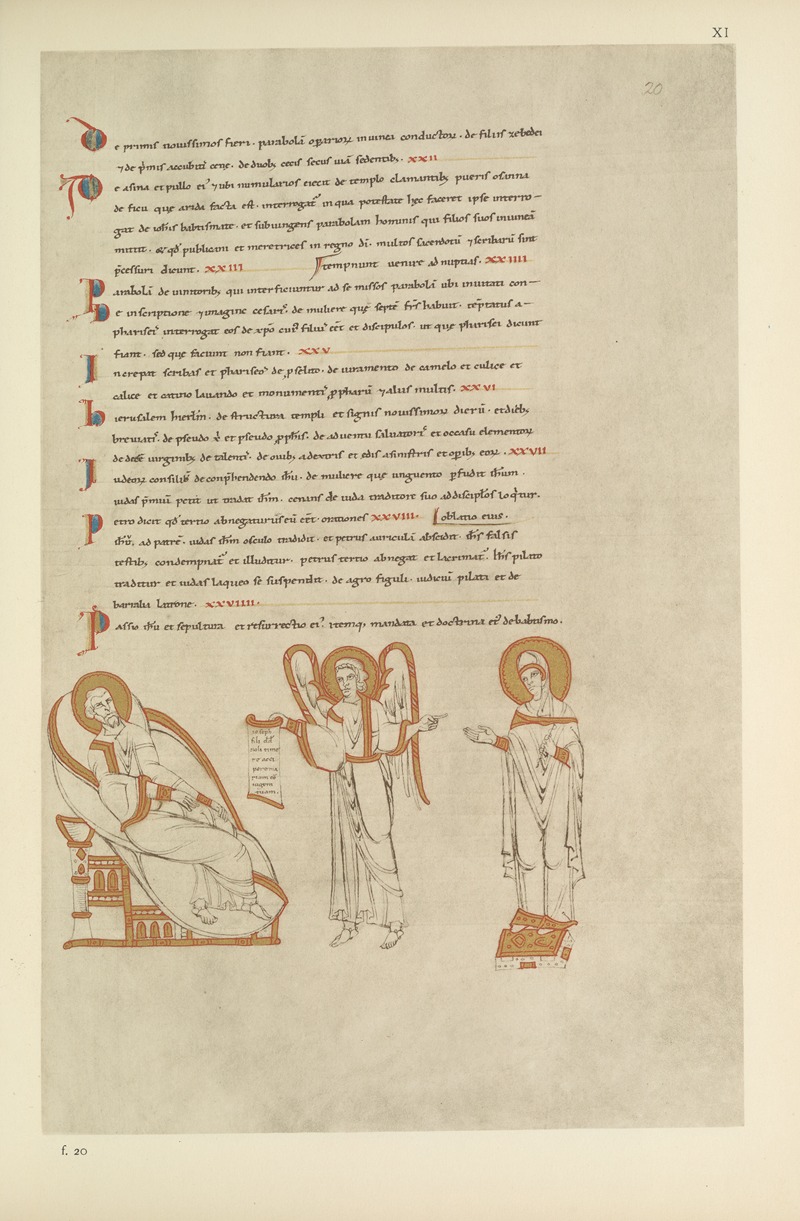 XI
20
De primis nouissimos fieri. parabolā operioꝝ in uinea conductoꝝ. de filiis zebedei
⁊ de p̄mis accubitū cene. de duob; cecis secus uiā sedentib;. XXII
De asina et pullo ei' ⁊ ubi numularios eiecit de templo clamantib; pueris osanna
de ficu que arida facta est. interrogat' in qua potestate hęc faceret ipse interro-
gat de ioħis babtismate. et subiungens parabolam hominis qui filios suos in uineā
mittit. & qd' publicani et meretrices in regno dī. multos sacerdotū ⁊ scribarū sint
p̄cessuri dicunt. XXIII
stempnunt uenire ad nuptias. XXIIII
Parabolā de uinitorib; qui interficiuntur ad se missos parabolā ubi inuitati con-
De inscriptione ⁊ imagine cesaris. de muliere quę septē frīs habuit. tēptatus a-
pharises interrogat eos de xpō cui' filius eēt et discipulos. ut que pharisei dicunt
fiant. sed que faciunt non fiant. XXV
Increpat scribas et phariseos de pselito. de iuramento de camelo et culice et
calice et catino lauando et monumentis ꝓphaꝝ ⁊ aliis multis. XXVI
hierusalem hierłm. de structura templi et signis nouissimoꝝ dierū. et dieb;
breuiatis. de pseudo xp̄i et pseudo ꝓphis. de aduentu saluatoris et occasu elementoꝝ
de decē uirginib; de talentis. de ouib; a dextris et edis a sinistris et opib; eoꝝ. XXVII
Iudeoꝝ consiliū de conp̄hendendo iħu. de muliere que unguento pfudit iħum.
iudas p̄miū petit ut tradat iħm. cenans de iuda traditore suo ad discipłos loq̄tur.
Petro dicit qd' tertio abnegaturus eū eēt. orationes XXVIII. oblatio eius.
iħu. ad patrē. iudas iħm osculo tradidit. et petrus auriculā abscidit. iħs falsis
testib; condempnat' et illuditur. petrus tertio abnegat et lacrimat'. Iħs pilato
traditur et iudas laqueo se suspendit. de agro figuli. iudiciū pilati et de
barraba latrone. XXVIIII.
Passio iħu et sepultura et resurrectio ei'. itemq; mandata et doctrina ei' de babtismo.
ioseph
fili dd'
noli time
re acci
pere ma
riam cō
iugem
tuam.
f. 20